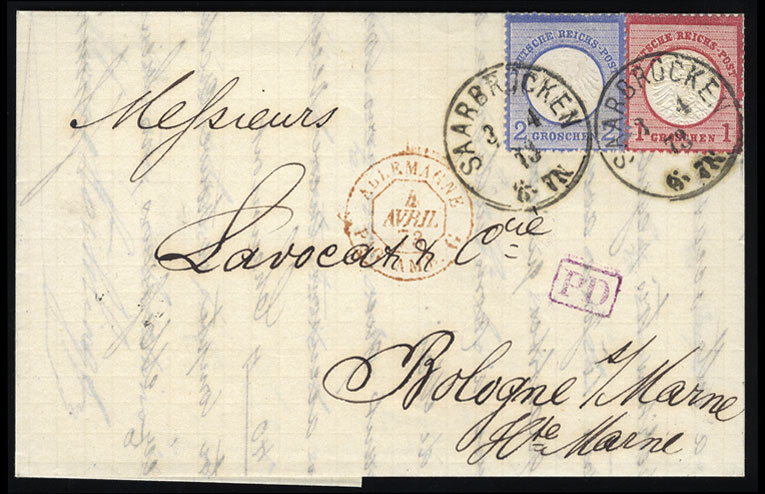 DEUTSCHE REICHS-POST
2 GROSCHEN 2
DEUTSCHE REICHS-POST
1 GROSCHEN 1
SAARBRÜCKEN
3 4
73
6-7N
SAARBRÜCKEN
3 4
73
6-7N
Messieurs
ALLEMAGNE
4
AVRIL
73
Lavocat & Cie
PD
Bologne s/Marne
Hte Marne